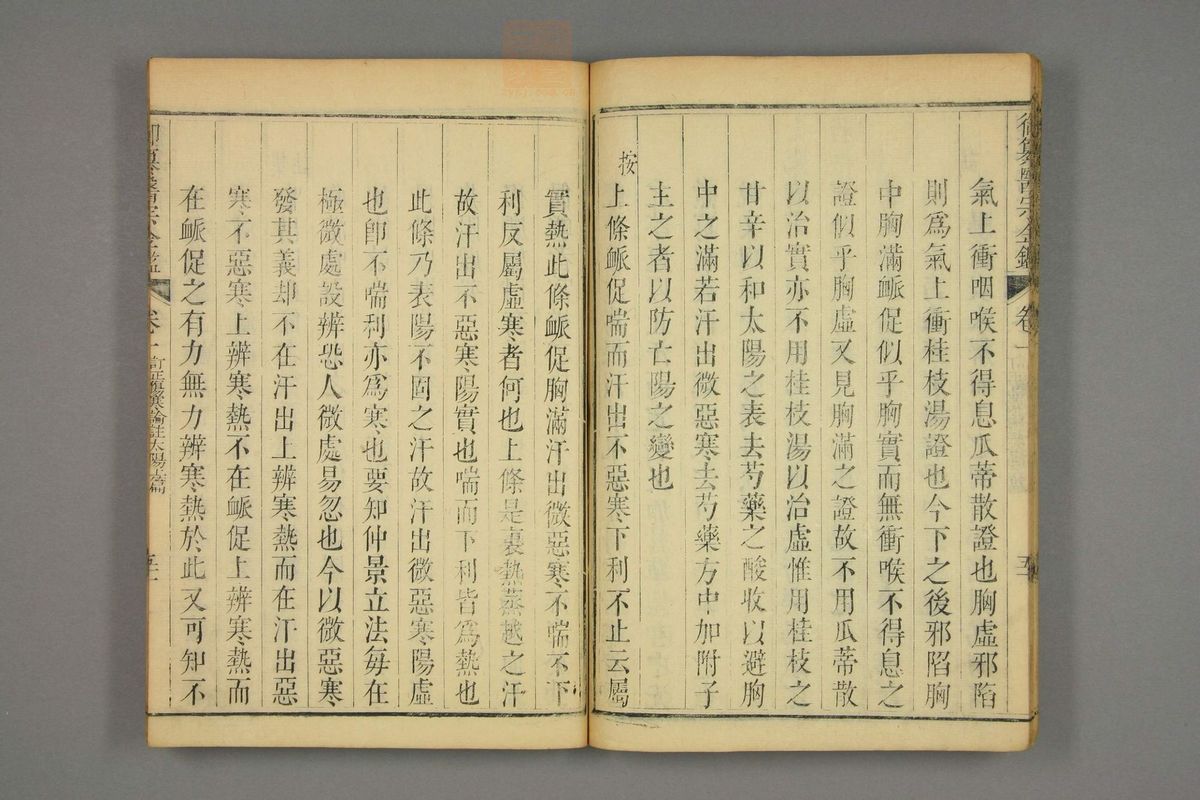 氣上衝咽喉不得息瓜蒂散證也胸虛邪陷
則爲氣上衝桂枝湯證也今下之後邪陷胸
中胸滿脈促似乎胸實而無衝喉不得息之
證似乎胸虛又見胸滿之證故不用瓜蒂散
以治實亦不用桂枝湯以治虛惟用桂枝之
甘辛以和太陽之表去芍藥之酸收以避胸
中之滿若汗出微惡寒去芍藥方中加附子
主之者以防亡陽之變也
按上條脈促喘而汗出不惡寒下利不止云屬
實熱此條脈促胸滿汗出微惡寒不喘不下
利反屬虛寒者何也上條是裏熱蒸越之汗
故汗出不惡寒陽實也喘而下利皆爲熱也
此條乃表陽不固之汗故汗出微惡寒陽虛
也卽不喘利亦爲寒也要知仲景立法每在
極微處設辨恐人微處易忽也今以微惡寒
發其義却不在汗出上辨寒熱而在汗出惡
寒不惡寒上辨寒熱不在脈促上辨寒熱而
在脈促之有力無力辨寒熱於此又可知不
卷一 訂正傷寒論註太陽上篇